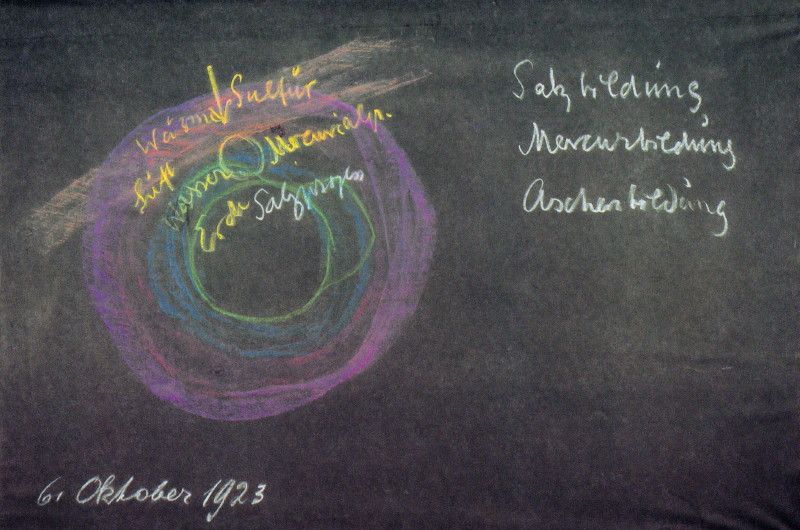 Sulfür
Wärme
Mercurialp.
Luft
Wasser
Erde Salzprozess
Salzbildung
Mercurbildung
Aschenbildung
6. Oktober 1923